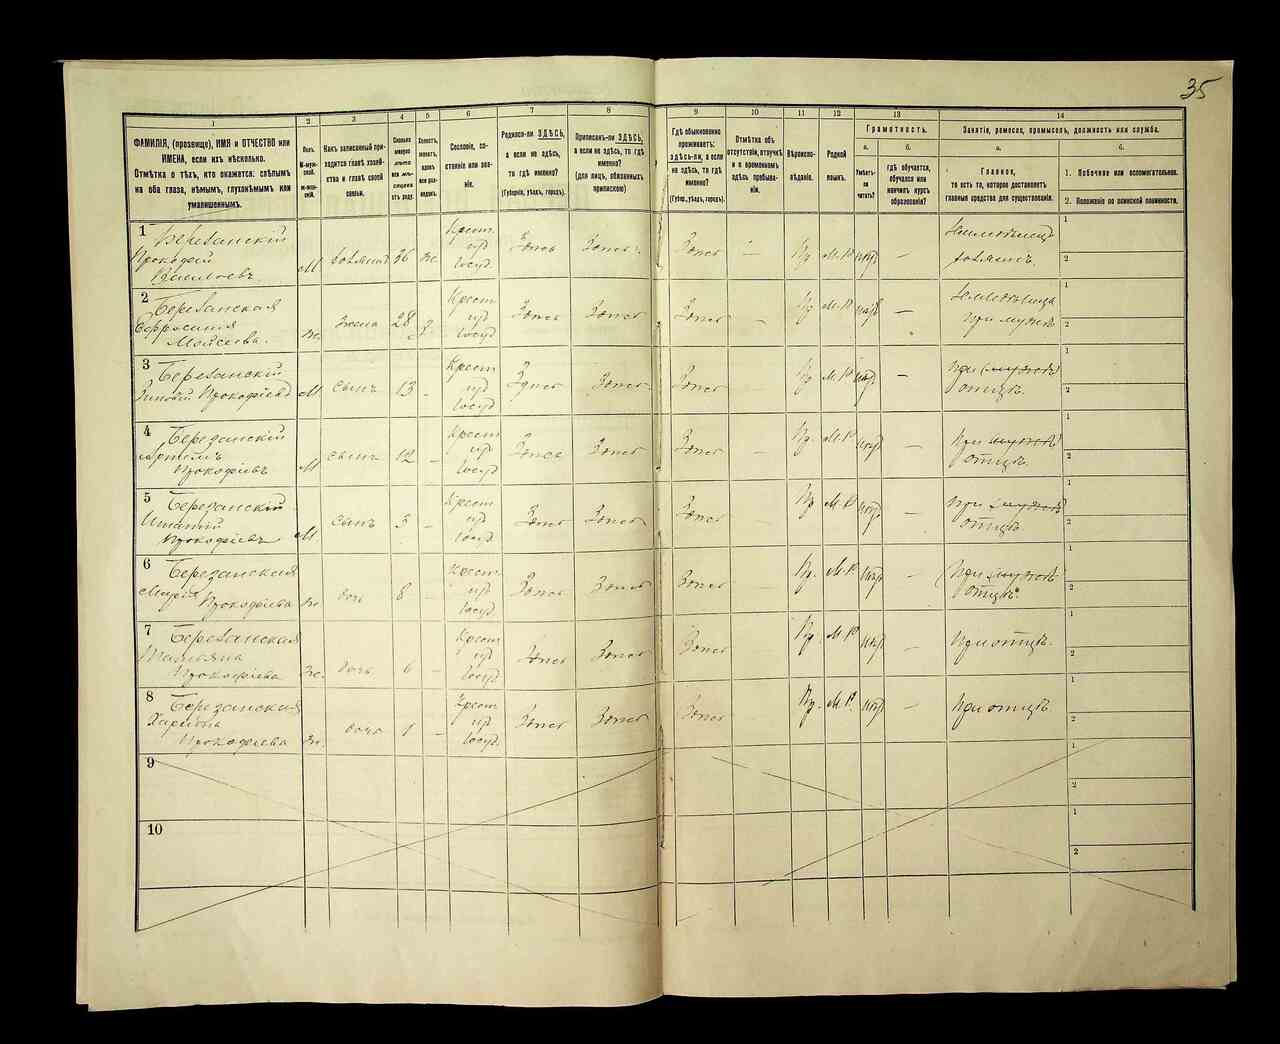 35
1
2
3
4
5
6
7
8
9
10
11
12
13
14
ФАМИЛІЯ, (прозвище), ИМЯ и ОТЧЕСТВО или
ИМЕНА, если ихъ нѣсколько.
Отмѣтка о тѣхъ, кто окажется: слѣпымъ
на оба глаза, нѣмымъ, глухонѣмымъ или
умалишеннымъ.
Полъ.
М-муж-
ской.
Ж-жен-
скій.
Какъ записанный при-
ходится главѣ хозяй-
ства и главѣ своей
семьи.
Сколько
минуло
лѣтъ
или мѣ-
сяцевъ
отъ роду.
Холостъ,
женатъ,
вдовъ
или раз-
веденъ.
Сословіе, со-
стояніе или зва-
ніе.
Родился-ли ЗДѢСЬ,
а если не здѣсь,
то гдѣ именно?
(Губернія, уѣздъ, городъ).
Приписанъ-ли ЗДѢСЬ,
а если не здѣсь, то гдѣ
именно?
(для лицъ, обязанныхъ
припискою)
Гдѣ обыкновенно
проживаетъ:
здѣсь-ли, а если
не здѣсь, то гдѣ
именно?
(Губер., уѣздъ, городъ).
Отмѣтка объ
отсутствіи, отлучкѣ
и о временномъ
здѣсь пребыва-
ніи.
Вѣроиспо-
вѣданіе.
Родной
языкъ.
Грамотность.
а.
Умѣетъ-
ли
читать?
б.
гдѣ обучается,
обучался или
кончилъ курсъ
образованія?
Занятіе, ремесло, промыселъ, должность или служба.
а.
Главное,
то есть то, которое доставляетъ
главныя средства для существованія.
б.
1. Побочное или вспомогательное.
2. Положеніе по воинской повинности.
1 Березанскій
Прокофій
Васильевъ М хозяинъ 36 ж. Крест. из Госуд. Здѣсь Здѣсь Здѣсь — Пр. М.Р. — Земледѣлецъ хозяинъ. 1 2
2 Березанская
Ефросинія
Моисеева. ж. жена 28 З. Крест из Госуд Здѣсь Здѣсь Здѣсь — Пр М.Р. — при мужѣ 1 2
3 Березанскій
Зиновій Прокофіевъ М сынъ 13 - Крест из Госуд Здѣсь Здѣсь Здѣсь — Пр М.Р. — При мужѣ отцѣ. 1 2
4 Березанскій
Прокофіевъ М сынъ 12 — Крест из Госуд Здѣсь Здѣсь Здѣсь — Пр. М.Р. — При мужѣ отцѣ. 1 2
5 Березанскій
Прокофіевъ М сынъ 3 — Крест из Госуд Здѣсь Здѣсь Здѣсь — Пр М.Р. — При мужѣ отцѣ. 1 2
6 Березанская
Марія Прокофіева ж. дочь 8 — Крест. из Госуд. Здѣсь Здѣсь Здѣсь — Пр. М.Р. — При мужѣ отцѣ. 1 2
7 Березанская
Татьяна
Прокофіева ж. дочь 6 — Крест из Госуд. Здѣсь Здѣсь Здѣсь Пр. М.Р. — При отцѣ. 1 2
8 Березанская
Прокофіева ж. дочь 1 — Крест из Госуд. Здѣсь Здѣсь Здѣсь Пр. М.Р. — При отцѣ. 1 2
9 1 2
10 1 2